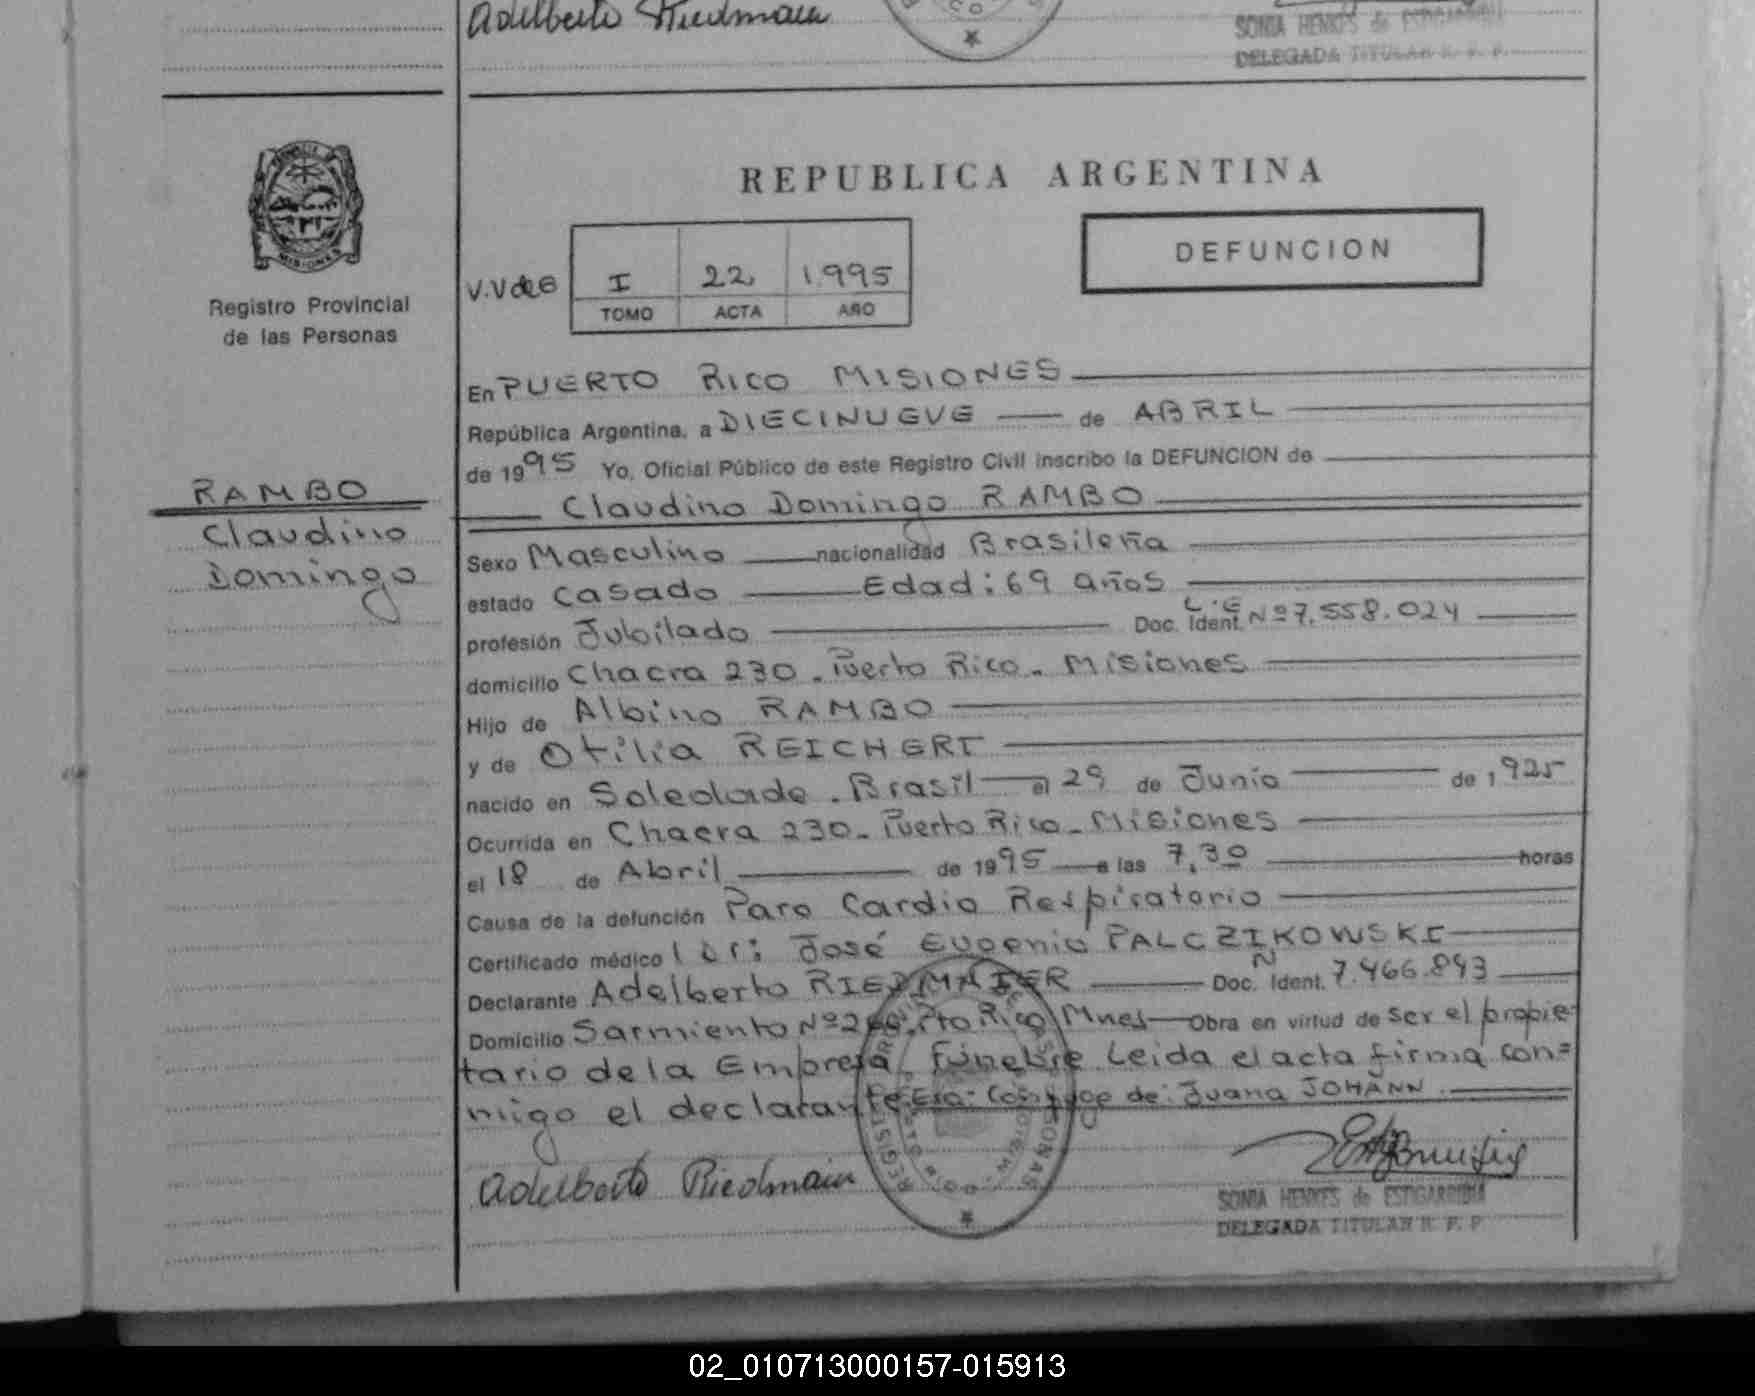 Adelberto Riedmaier
SONIA HENKES de ESTIGARRIBIA
DELEGADA TITULAR R. P. P.
PROVINCIA DE
MISIONES
Registro Provincial
de las Personas
REPUBLICA ARGENTINA
DEFUNCION
V.V de G
I 22 1.995
TOMO ACTA AÑO
En PUERTO RICO MISIONES
República Argentina, a DIECINUEVE de ABRIL
de 1995 Yo, Oficial Público de este Registro Civil inscribo la DEFUNCION de
RAMBO
Claudino
Domingo
Claudino Domingo RAMBO
Sexo Masculino nacionalidad Brasileña
estado Casado Edad: 69 años
profesión Jubilado Doc. Ident. L.E Nº 7.558.024
domicilio Chacra 230. Puerto Rico. Misiones
Hijo de Albino RAMBO
y de Otilia REICHERT
nacido en Soledade. Brasil el 29 de Junio de 1925
Ocurrida en Chacra 230. Puerto Rico. Misiones
el 18 de Abril de 1995 a las 7,30 horas
Causa de la defunción Paro Cardio Respiratorio
Certificado médico Dr: José Eugenio PALCZIKOWSKI
Declarante Adelberto RIEDMAIER Doc. Ident. N 7.466.893
Domicilio Sarmiento Nº Pto Rico Mnes Obra en virtud de ser el propie-
tario de la Empresa Fúnebre. Leida el acta firma con=
migo el declarante. Era: Conyuge de: Juana JOHANN.
Adelberto Riedmaier
SONIA HENKES de ESTIGARRIBIA
DELEGADA TITULAR R. P. P
02_010713000157-015913